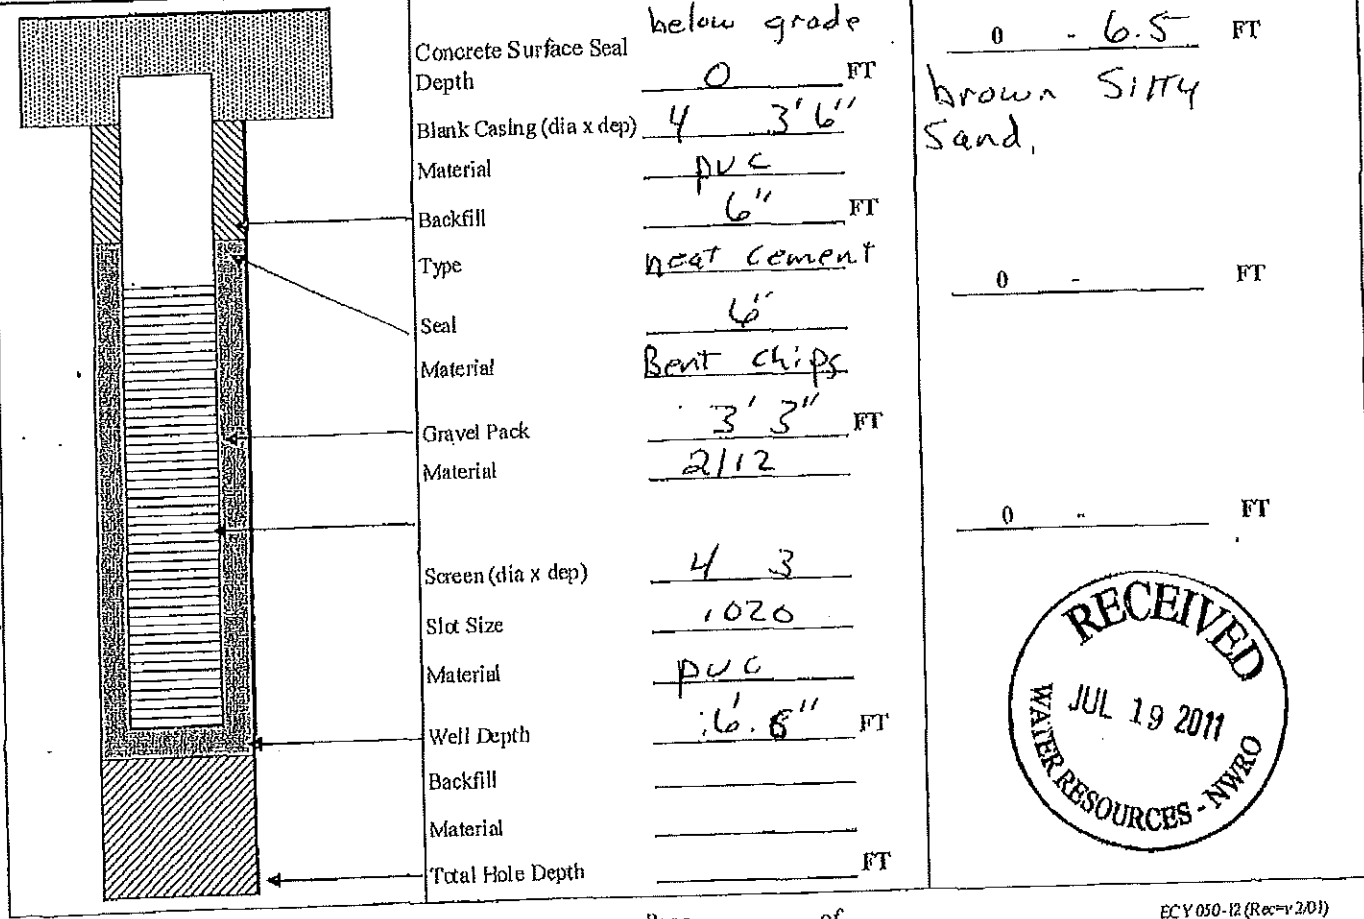 below grade
Concrete Surface Seal
Depth 0 FT
Blank Casing (dia x dep) 4 3' 6"
Material pvc
Backfill 6" FT
Type neat cement
Seal 6"
Material Bent chips
Gravel Pack 3' 3" FT
Material 2/12
Screen (dia x dep) 4 3
Slot Size .020
Material pvc
Well Depth FT
Backfill
Material
Total Hole Depth FT
0 - 6.5 FT
brown Silty
Sand.
0 - FT
0 - FT
RECEIVED
JUL 19 2011
WATER RESOURCES - NWRO
of
ECY 050-12 (Rec=v 2/01)